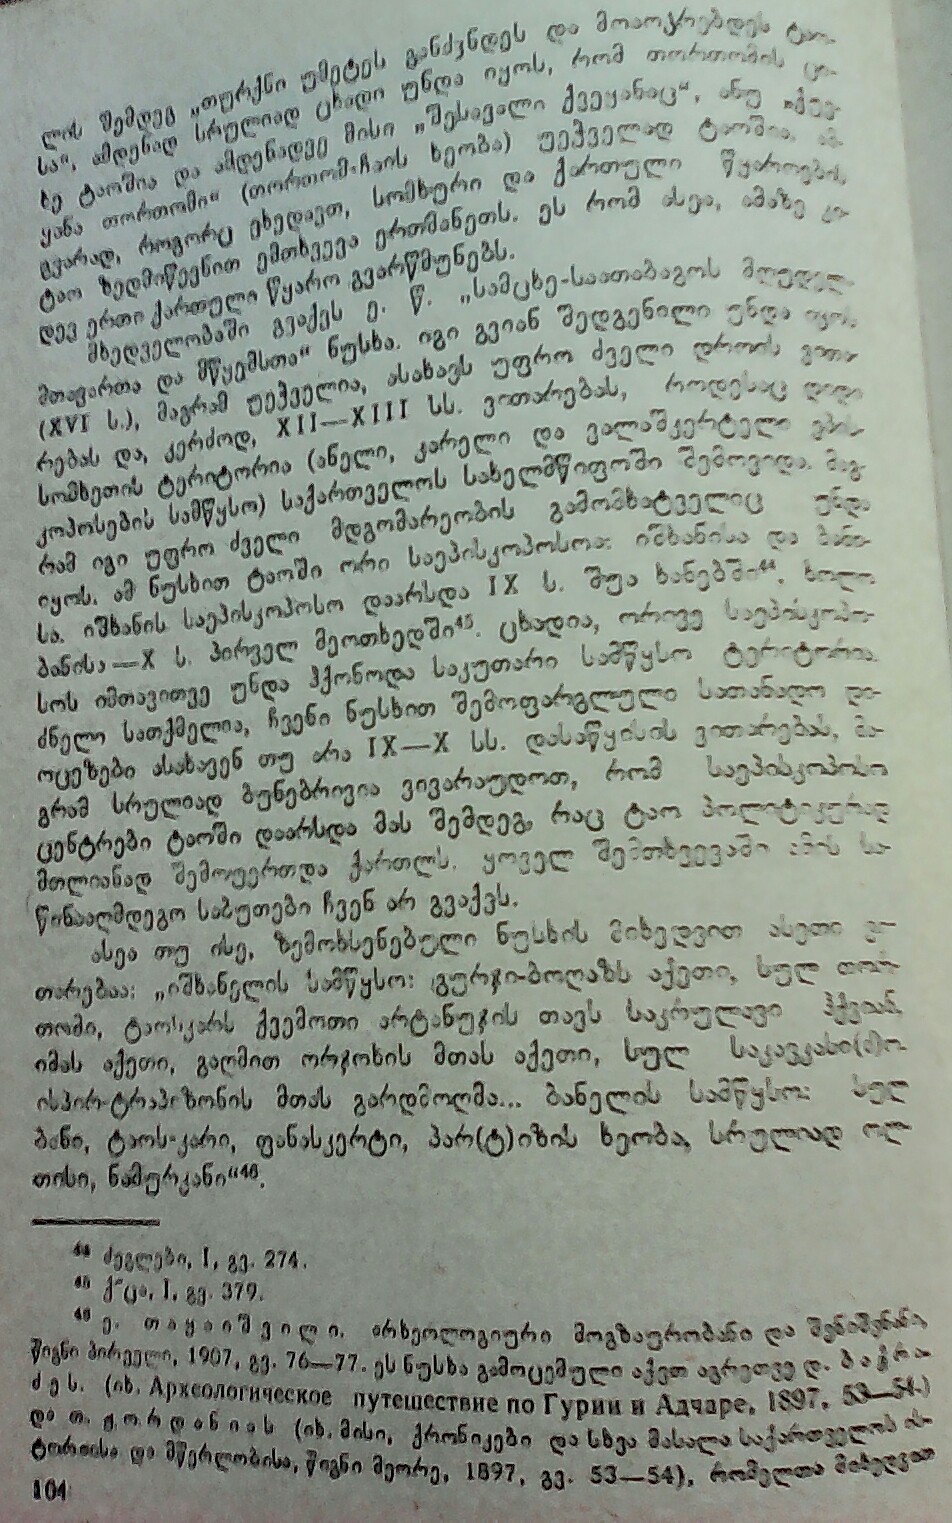 ლის შემდეგ „თურქნი უმეტეს განძჳნდეს და მოაოჴრებდეს ტაო-
სა“, ამდენად სრულიად ცხადი უნდა იყოს, რომ თორთომის ცი-
ხე ტაოშია და ამდენადვე მისი „შესავალი ქვეყანაც“, ანუ „ქვე-
ყანა თორთომი“ (თორთომ-ჩაის ხეობა) უეჭველად ტაოშია. ამ-
გვარად, როგორც ვხედავთ, სომხური და ქართული წყაროების
ტაო ზედმიწევნით ემთხვევა ერთმანეთს. ეს რომ ასეა, ამაზე კი-
დევ ერთი ქართული წყარო გვარწმუნებს.
მხედველობაში გვაქვს ე. წ. „სამცხე-საათაბაგოს მღვდელ-
მთავართა და მწყემსთა“ ნუსხა. იგი გვიან შედგენილი უნდა იყოს
(XVI ს.), მაგრამ უეჭველია, ასახავს უფრო ძველი დროის ვითა-
რებას და, კერძოდ, XII—XIII სს. ვითარებას, როდესაც დიდი
სომხეთის ტერიტორია (ანელი, კარელი და ვალაშკერტელი ეპის-
კოპოსების სამწყსო) საქართველოს სახელმწიფოში შემოვიდა. მაგ-
რამ იგი უფრო ძველი მდგომარეობის გამომხატველიც უნდა
იყოს. ამ ნუსხით ტაოში ორი საეპისკოპოსოა: იშხანისა და ბანი-
სა. იშხანის საეპისკოპოსო დაარსდა IX ს. შუა ხანებში⁴⁴, ხოლო
ბანისა—X ს. პირველ მეოთხედში⁴⁵. ცხადია, ორივე საეპისკოპო-
სოს იმთავითვე უნდა ჰქონოდა საკუთარი სამწყსო ტერიტორია.
ძნელი სათქმელია, ჩვენი ნუსხით შემოფარგლული სათანადო დი-
ოცეზები ასახავენ თუ არა IX—X სს. დასაწყისის ვითარებას, მა-
გრამ სრულიად ბუნებრივია ვივარაუდოთ, რომ საეპისკოპოსო
ცენტრები ტაოში დაარსდა მას შემდეგ, რაც ტაო პოლიტიკურად
მთლიანად შემოუერთდა ქართლს. ყოველ შემთხვევაში ამის სა-
წინააღმდეგო საბუთები ჩვენ არ გვაქვს.
ასეა თუ ისე, ზემოხსენებული ნუსხის მიხედვით ასეთი ვი-
თარებაა: „იშხანელის სამწყსო: გურჯი-ბოღაზს აქეთი, სულ თორ-
თომი, ტაოსკარს ქვემოთი არტანუჯის თავს საკრულავი ჰქვიან,
იმას აქეთი, გაღმით ორჯოხის მთას აქეთი, სულ საკავკასი(ძ)ო.
ისპირ-ტრაპიზონის მთას გარდმოღმა... ბანელის სამწყსო: სულ
ბანი, ტაოს-კარი, ფანასკერტი, პარ(ტ)იზის ხეობა, სრულიად ოლ-
თისი, ნამურკანი“⁴⁶.
⁴⁴ ძეგლები, I, გვ. 274.
⁴⁵ ქ“ცა, I, გვ. 379.
⁴⁶ ე. თაყაიშვილი. არხეოლოგიური მოგზაურობანი და შენიშვნანი,
წიგნი პირველი, 1907, გვ. 76—77. ეს ნუსხა გამოცემული აქვთ აგრეთვე დ. ბაქრა-
ძეს. (იხ. Археологическое путешествие по Гурии и Адчаре, 1897, 53—54.)
და თ. ჟორდანიას (იხ. მისი, ქრონიკები და სხვა მასალა საქართველოს ის-
ტორიისა და მწერლობისა, წიგნი მეორე, 1897, გვ. 53—54), რომელთა მიხედვით
104